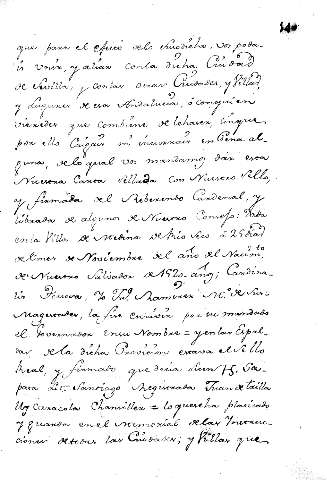 que para el efecto de lo susodicho, vos poda-
is Vnir, y aliar con la dicha Ciudad
de Sevilla, y con las otras Ciudades, y Villas
y Lugares de esa Andalucia, ó con quien
vieredes que combiene de lo hacer sin que
por ello Caigais ni incurrais en Pena al-
guna, de lo qual vos mandamos dar esta
Nuestra Carta Sellada con Nuestro Sello,
y firmada del Reberendo Cardenal, y
librada de algunos de Nuestro Consejo: Dada
en la Villa de Medina de Rio Seco á 25 dias
del mes de Noviembre del año del Nacim.to
de Nuestro Salvador de 1520 años; Cardina-
lis Yo Ramirez
la fice escrivir por su mandado
el Governador en su Nombre = y en las Espal-
das de la dicha Provision estava el Sello
Real, y firmado que decia
para Santiago Registrada Juan de
Chanciller = lo qual ha platicado
y guarda en el Memorial de las
ciones de todas las Ciudades; y Villas que